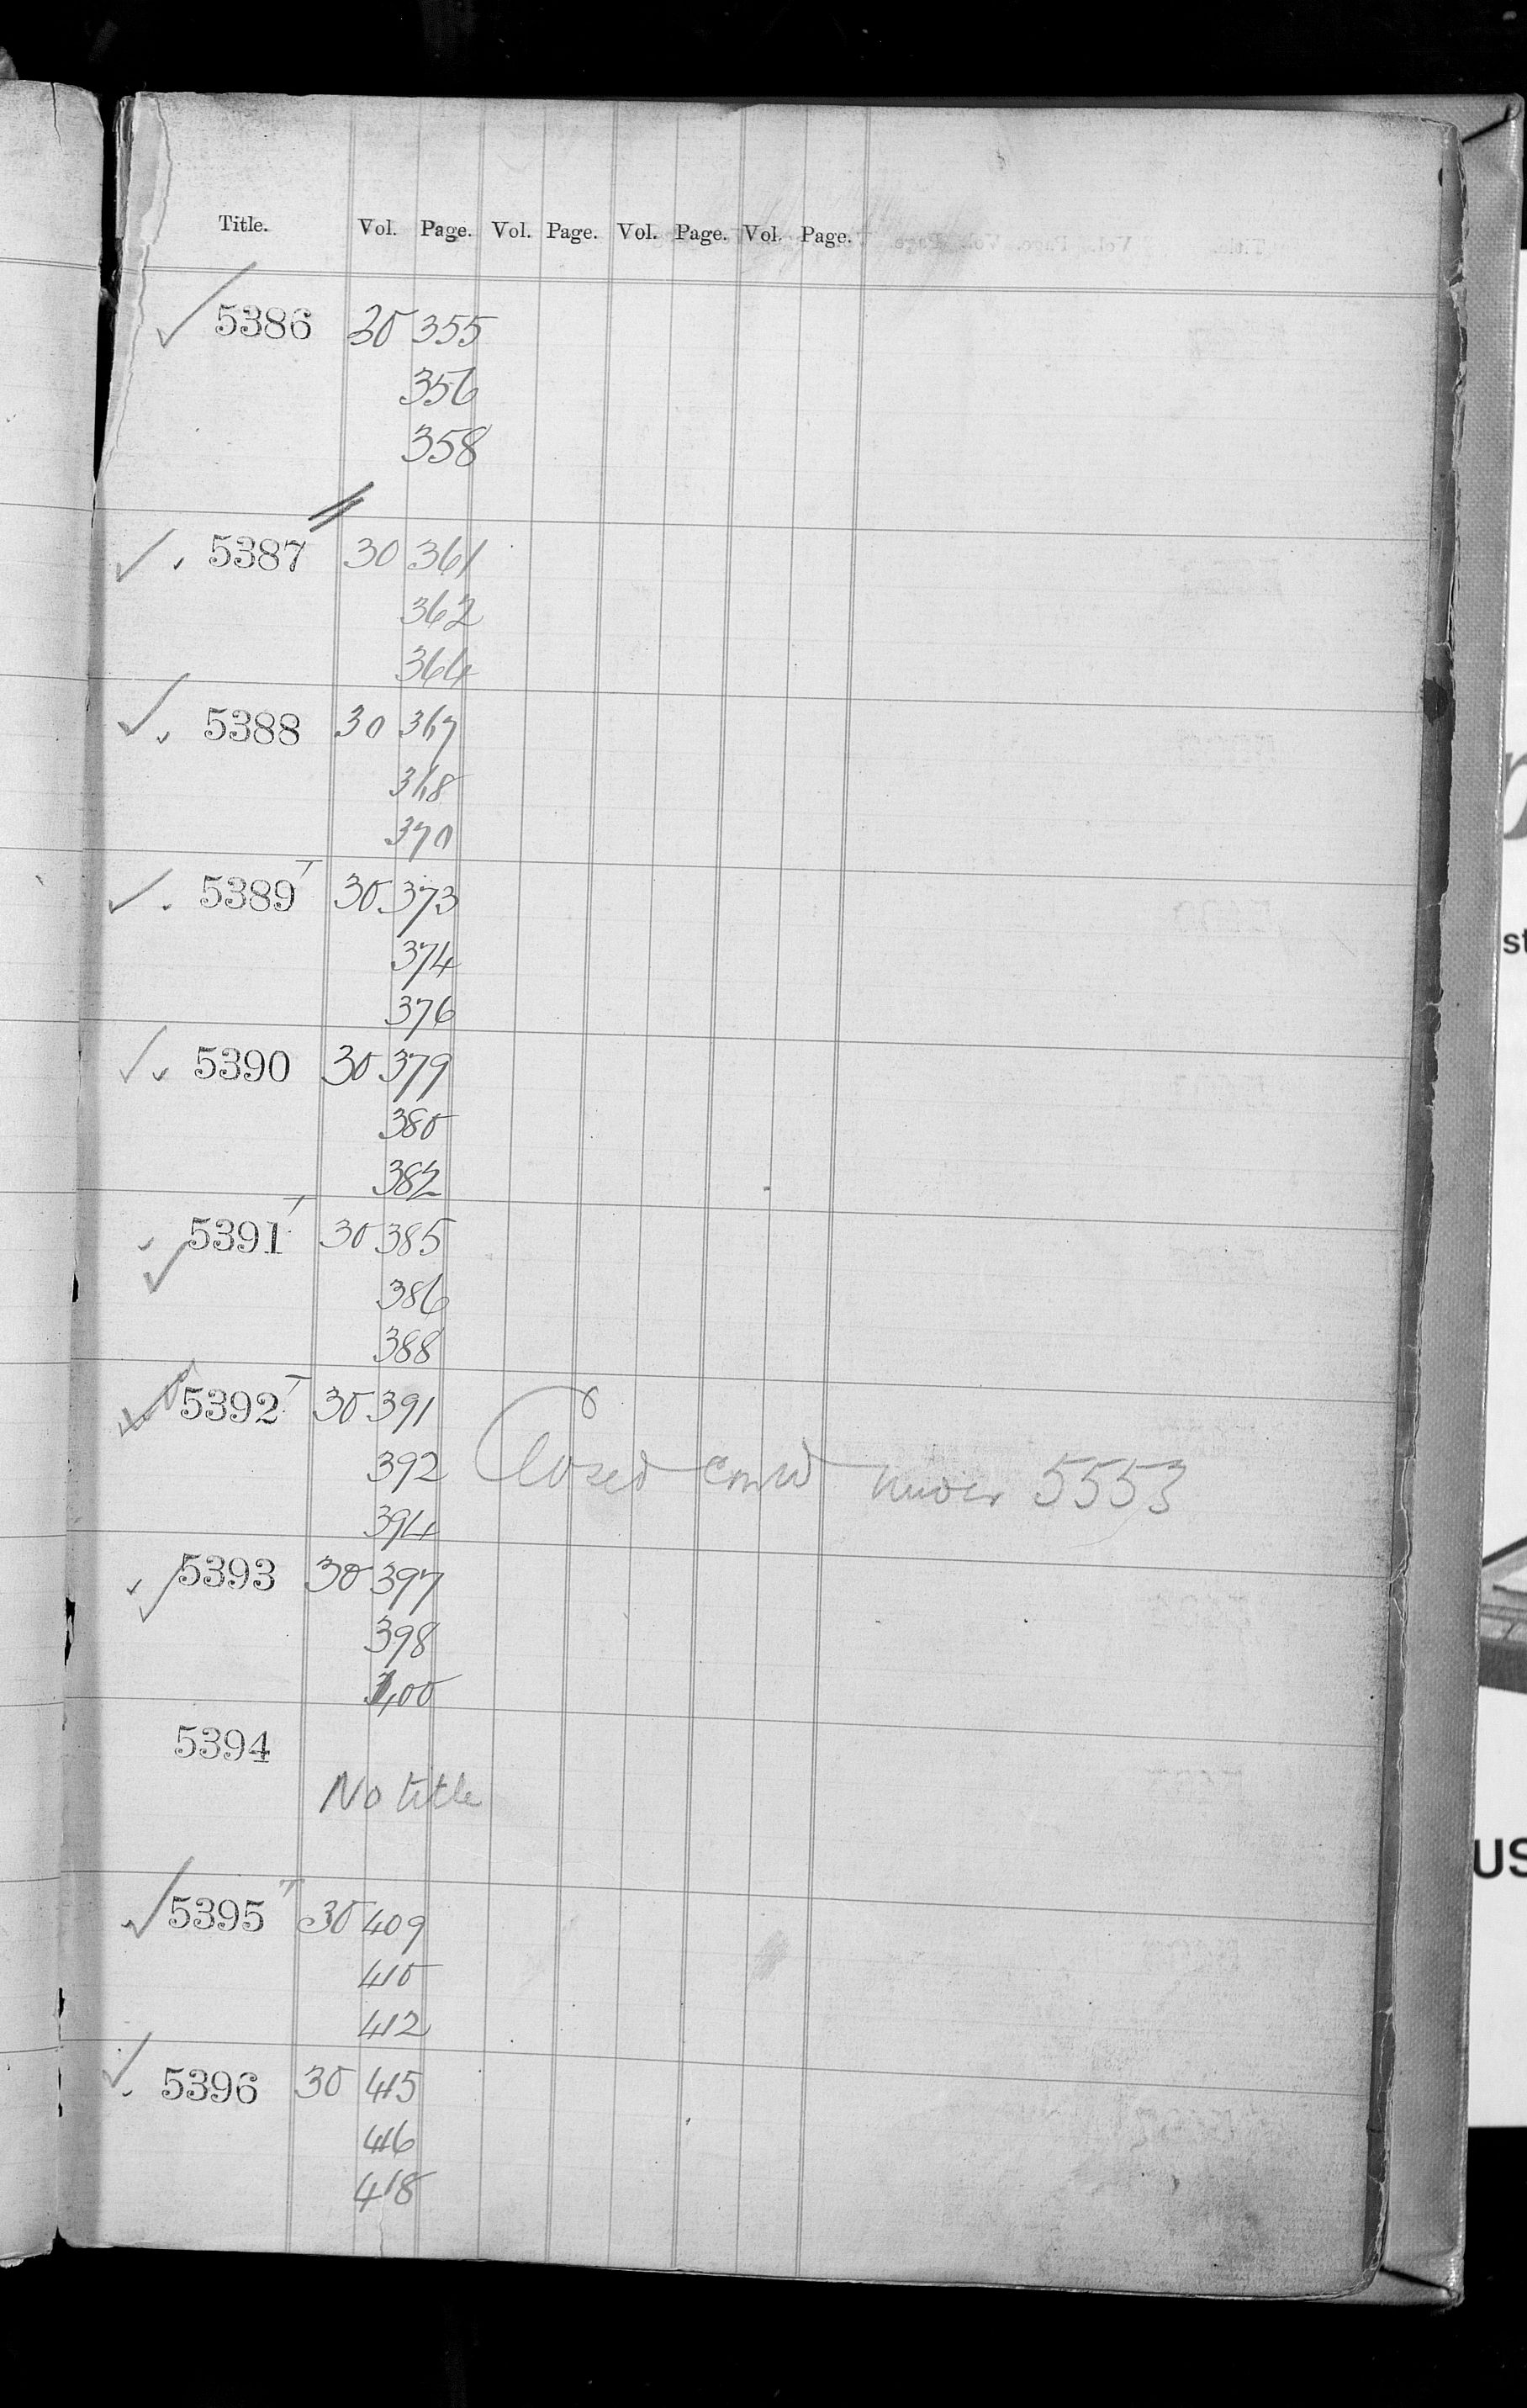 Title. Vol. Page. Vol. Page. Vol. Page. Vol. Page.
✓ 5386 30 355
356
358
✓ 5387 30 361
362
364
✓ 5388 30 367
368
370
✓ 5389 T 30 373
374
376
✓ 5390 30 379
380
382
✓ 5391 T 30 385
386
388
5392 T 30 391
392 Closed contd under 5553
394
✓ 5393 30 397
398
400
5394
No title
✓ 5395 T 30 409
410
412
✓ 5396 30 415
416
418
st
US